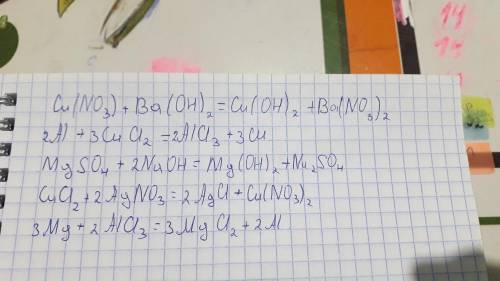 Cu(NO₃)+Ba(OH)₂=Cu(OH)₂+Ba(NO₃)₂
2Al+3CuCl₂=2AlCl₃+3Cu
MgSO₄+2NaOH=Mg(OH)₂+Na₂SO₄
CuCl₂+2AgNO₃=2AgCl+Cu(NO₃)₂
3Mg+2AlCl₃=3MgCl₂+2Al